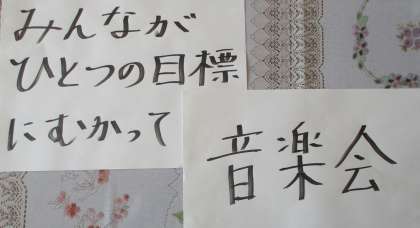 みんなが
ひとつの目標
にむかって
音楽会